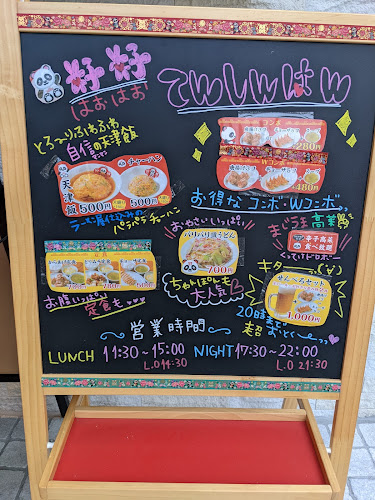 好好
はおはお
てんしんはん
とろ〜りふわふわ
自信の天津飯
天津飯 500円
チャーハン 500円
ラーメン屋仕込みの
パラパラチャーハン
コンボ
280円
Wコンボ
480円
お得なコンボ・Wコンボ♪
おやさいいっぱい
パリパリ皿うどん
700円
ちゃんぽんも
大人気
まじうま高菜
辛子高菜
食べ放題
定食
お腹いっぱい
定食も
せんべろセット
1,000円
20時まで
超おトク
営業時間
LUNCH 11:30〜15:00
L.O 14:30
NIGHT 17:30〜22:00
L.O 21:30